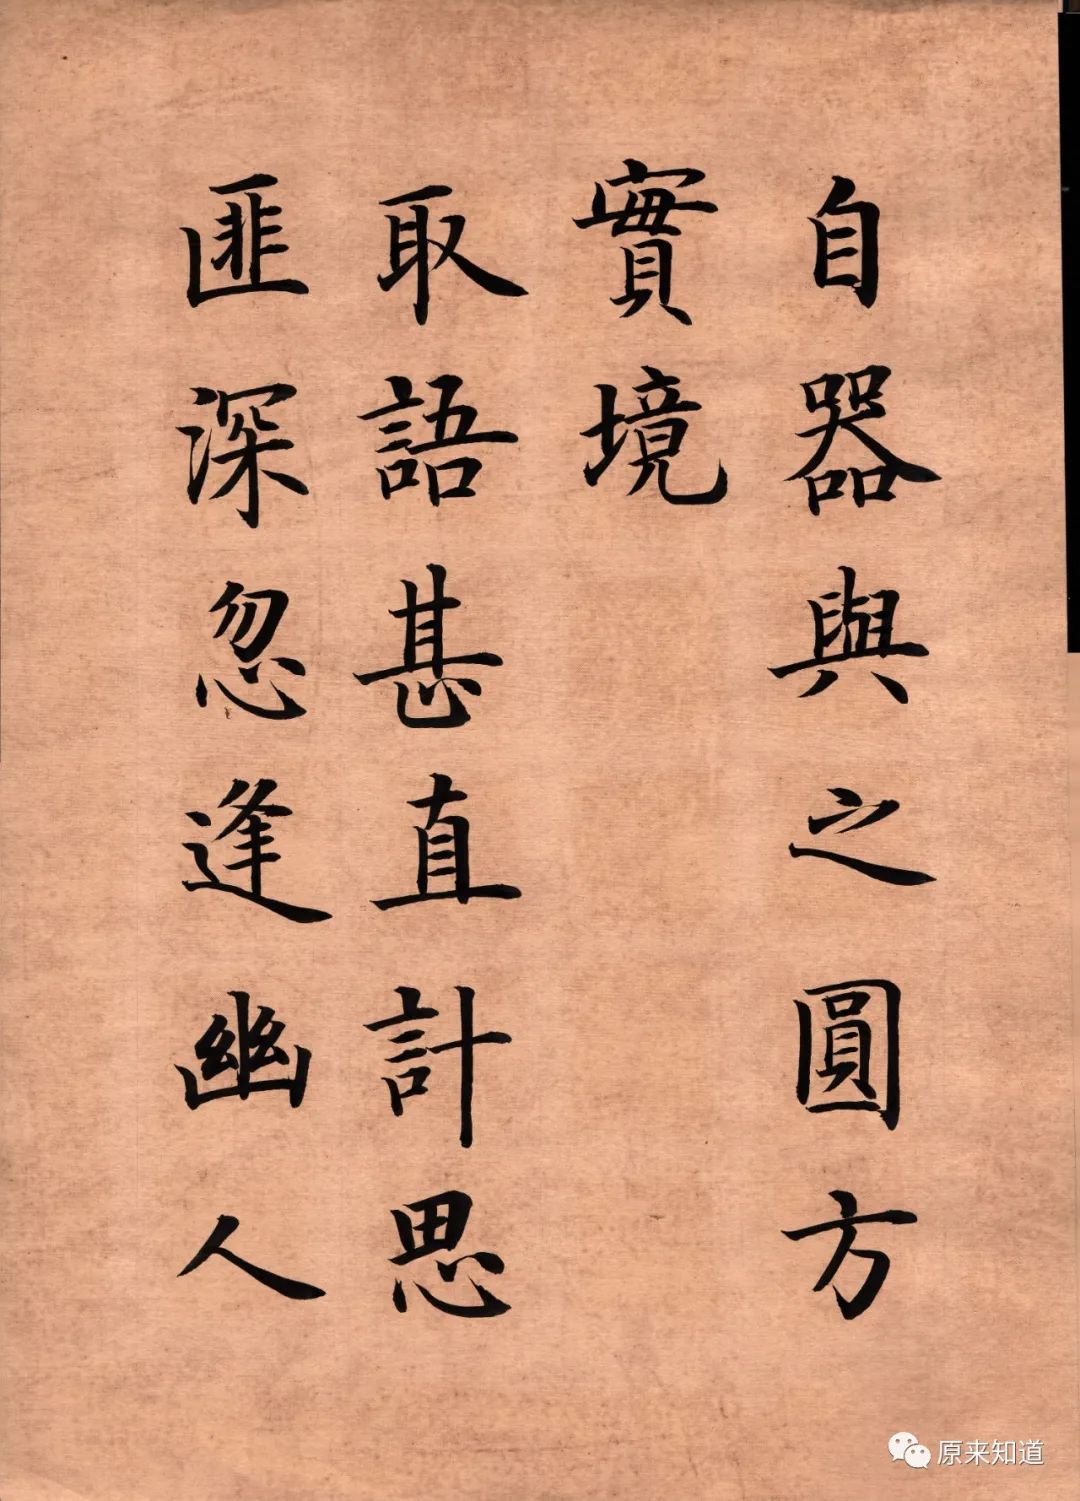 自器與之圓方
實境
取語甚直計思
匪深忽逢幽人
原来知道